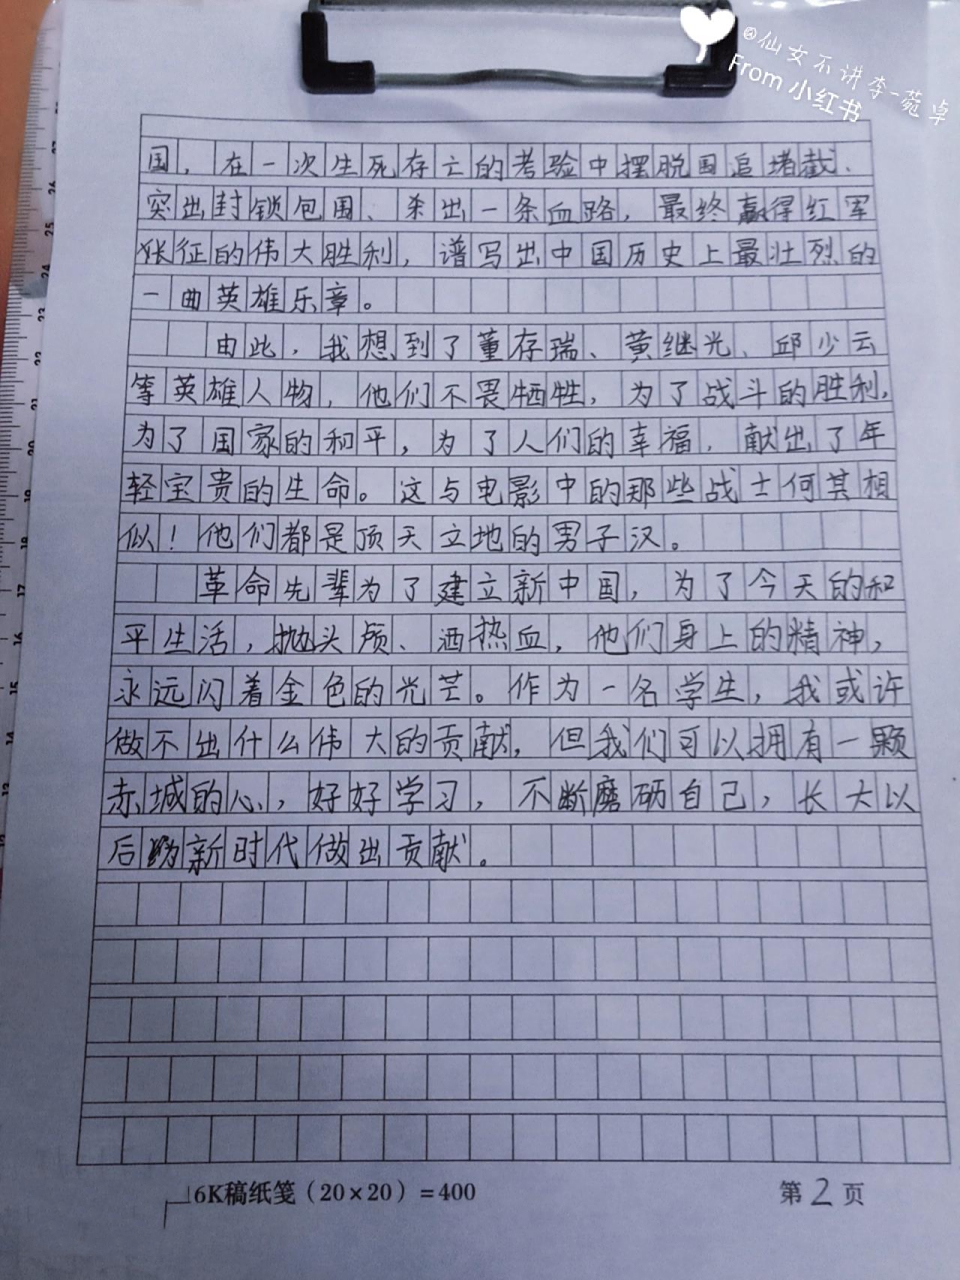 @仙女不讲李-菀卓
From 小红书
国，在一次生死存亡的考验中摆脱围追堵截、
突出封锁包围、杀出一条血路，最终赢得红军
长征的伟大胜利，谱写出中国历史上最壮烈的
一曲英雄乐章。
由此，我想到了董存瑞、黄继光、邱少云
等英雄人物，他们不畏牺牲，为了战斗的胜利，
为了国家的和平，为了人们的幸福，献出了年
轻宝贵的生命。这与电影中的那些战士何其相
似！他们都是顶天立地的男子汉。
革命先辈为了建立新中国，为了今天的和
平生活，抛头颅、洒热血，他们身上的精神，
永远闪着金色的光芒。作为一名学生，我或许
做不出什么伟大的贡献，但我们可以拥有一颗
赤城的心，好好学习，不断磨砺自己，长大以
后为新时代做出贡献。
16K稿纸笺（20×20）=400
第2页